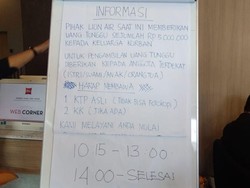 INFORMASI
PIHAK LION AIR SAAT INI MEMBERIKAN
UANG TUNGGU SEJUMLAH RP 5.000.000
KEPADA KELUARGA KORBAN
UNTUK PENGAMBILAN UANG TUNGGU
DIBERIKAN KEPADA ANGGOTA TERDEKAT
(ISTRI/SUAMI/ANAK/ORANGTUA)
HARAP MEMBAWA
1. KTP ASLI
2. KK
KAMI MELAYANI ANDA MULAI
10:15 - 13.00
14:00 - SELESAI
WEB
CORNER